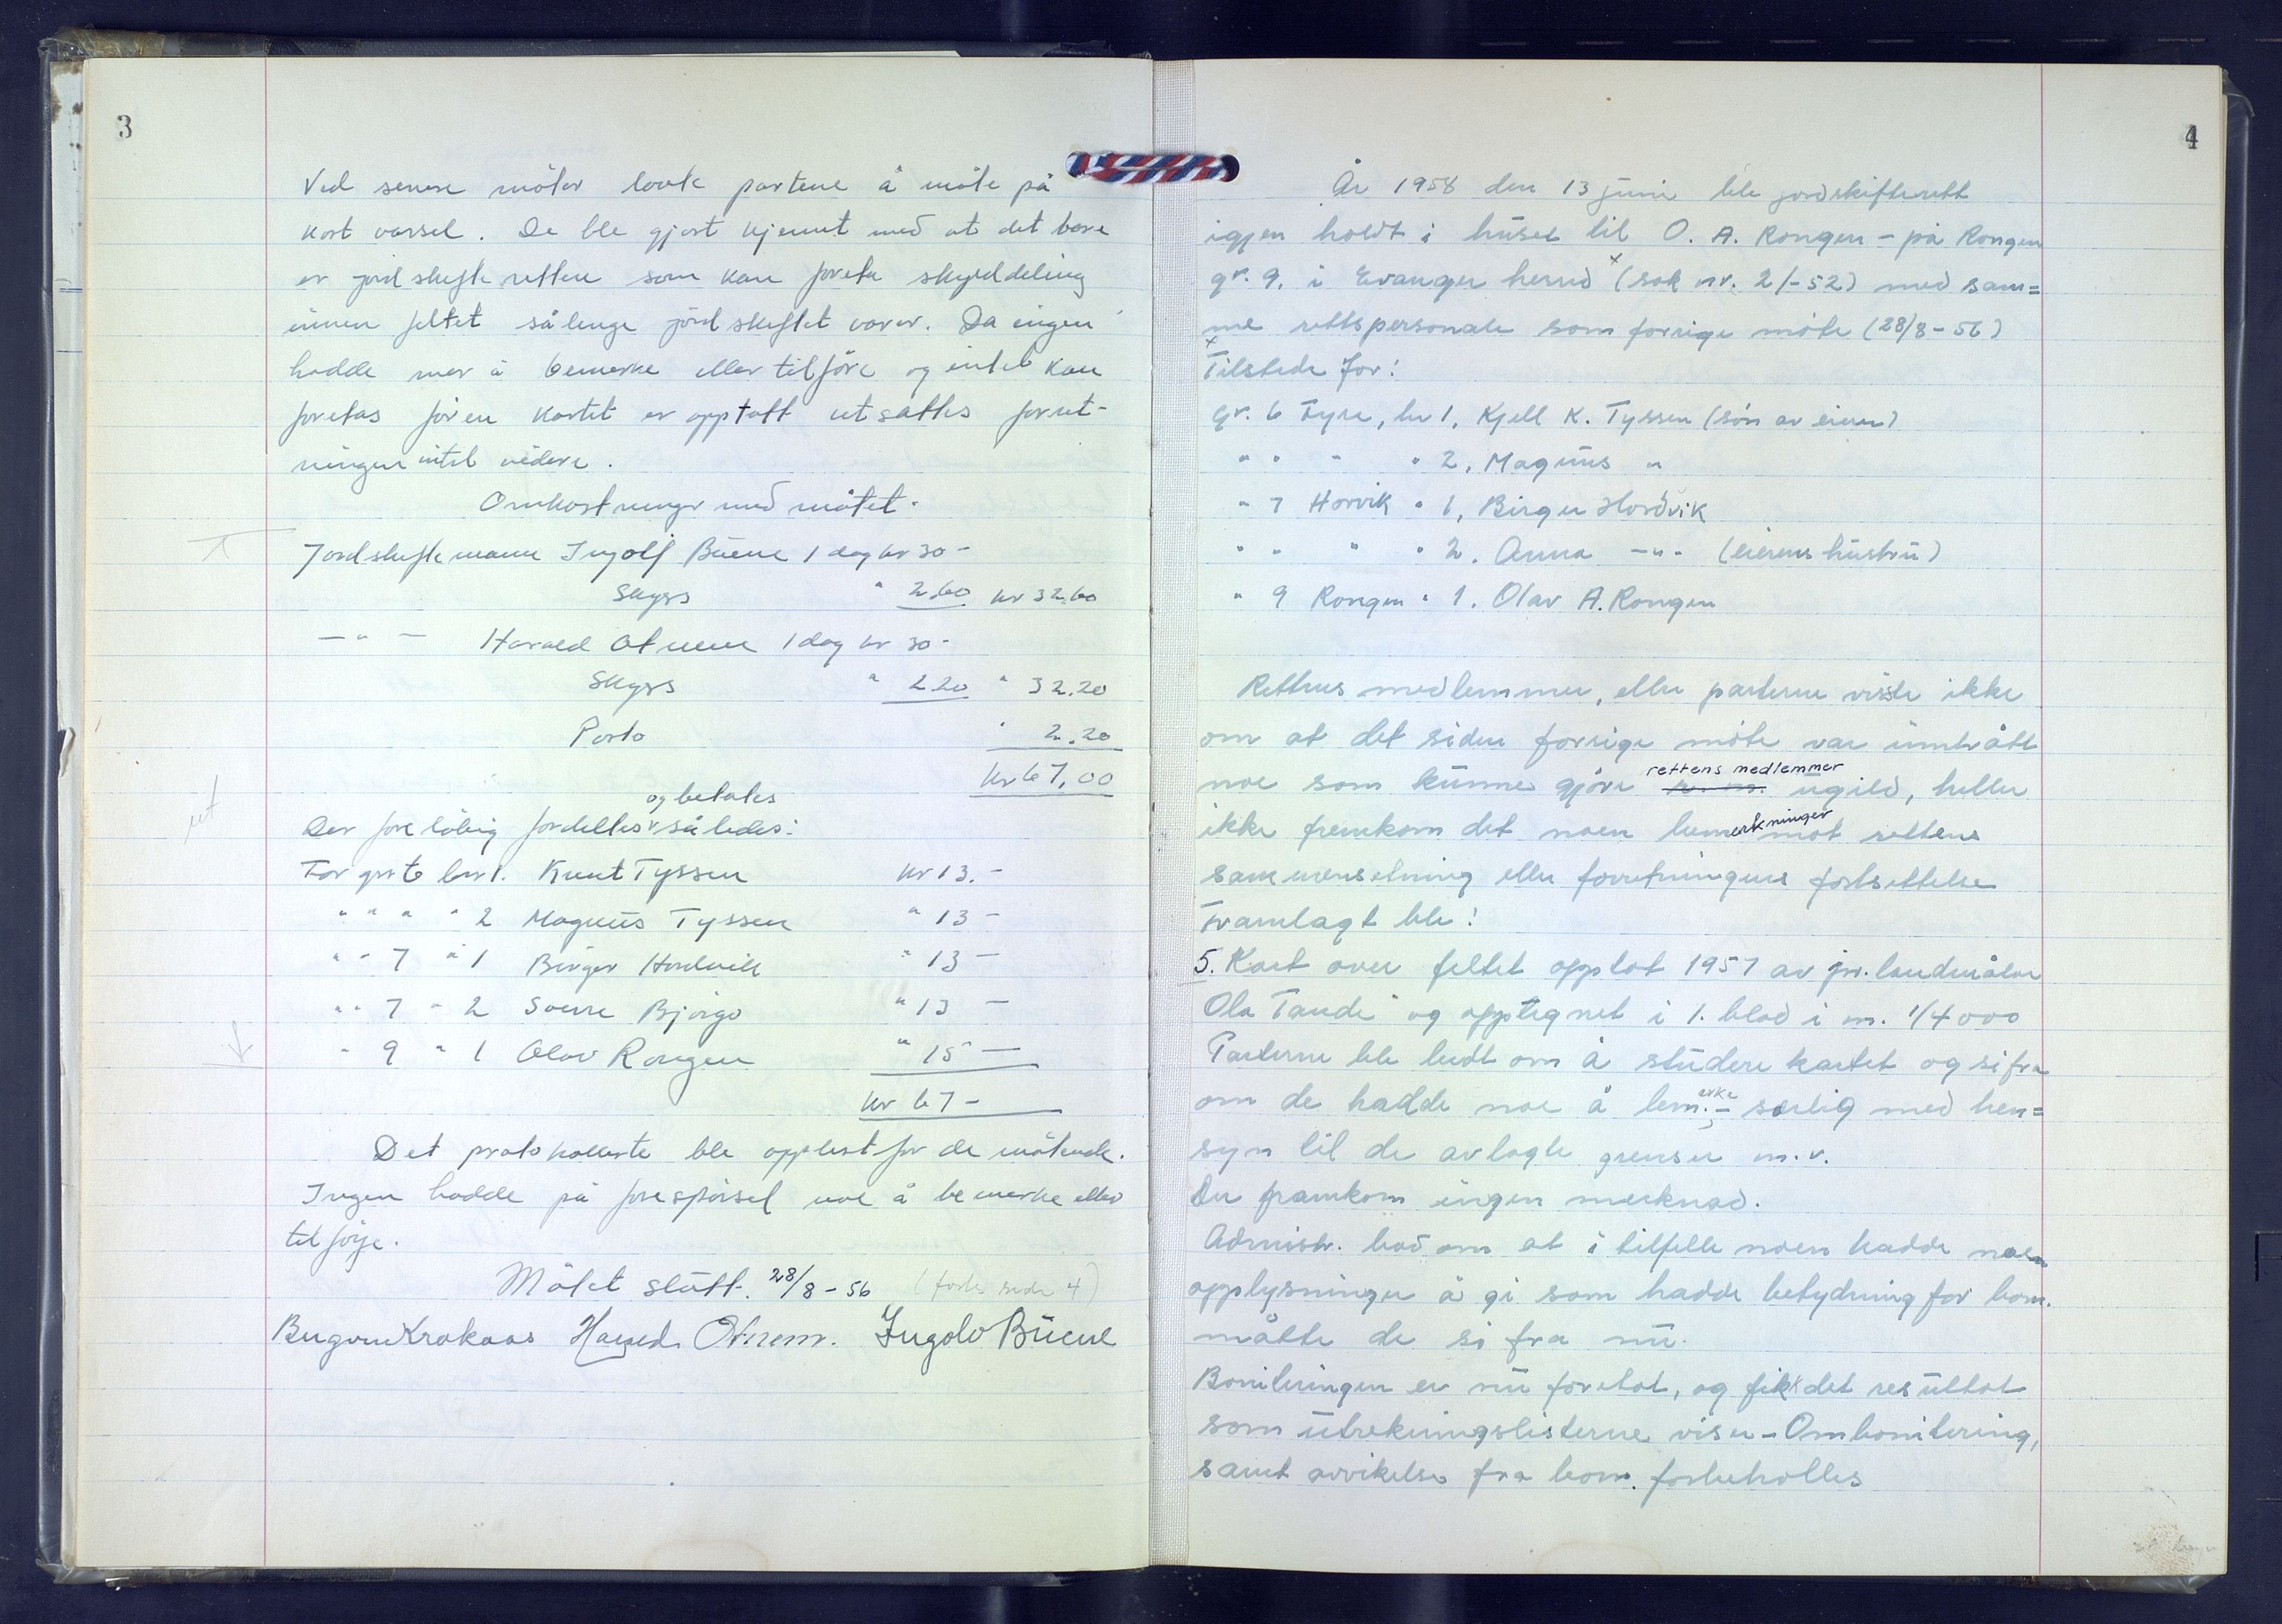 3
Ved senere möter lovte partene å möte på
kort varsel. De ble gjort kjennt med at det bare
er jordskifteretten som kan foreta skylddeling
innen feltet sålenge jordskiftet varer. Da ingen
hadde mer å bemerke eller tilföre og intet kan
foretas för en kartet er opptatt utsattes forret-
ningen intil videre.
Omkostninger med mötet.
Jordskiftemann Ingolf Búene 1 dag kr 30-
Skyss " 2,60 kr 32,60
— " — Harald Otnem 1 dag kr 30-
Skyss " 2.20 " 32.20
Porto " 2.20
kr 67,00
og betales
Der forelöbig fordeltes således:
For gnr 6 bnr 1. Knut Tyssen kr 13.-
" " " " 2 Magnús Tyssen " 13 -
" " 7 " 1 Birger Hordvik " 13 -
" " 7 " 2 Sverre Björgo " 13 -
" 9 " 1 Olav Rongen " 15 -
kr 67 -
Det protokollerte ble opplest for de mötende.
Ingen hadde på forespörsel noe å bemerke eller
tilföye.
Mötet slútt. 28/8 - 56 (forts side 4)
Brynm Krakaas Harald Otnem. Ingolv Búene
4
År 1958 den 13 júni ble jordskifterett
igjen holdt i húset til O. A. Rongen - på Rongen
gr. 9. i Evanger herred x (sak nr. 2/-52) med sam=
me rettspersonale som forrige möte (28/8 - 56)
x Tilstede for:
Gr. 6 Fyre, br 1, Kjell K. Tyssen (sön av eieren)
" " " " 2, Magnús "
" 7 Horvik " 1, Birger Hordvik
" " " " 2. Anna -"- (eierens hústrú)
" 9 Rongen " 1. Olav A. Rongen
Rettens medlemmer, eller parterne visste ikke
om at det siden forrige möte var inntrått
noe som kúnne gjöre r. m. rettens medlemmer úgild, heller
ikke fremkom det noen bemerkninger mot rettens
sammensetning eller forretningens fortsettelse
Framlagt ble:
5. Kart over feltet opptat 1957 av jsk. landmåler
Ola Tande og opptegnet i 1. blad i m. 1/4000
Parterne ble bedt om å stúdere kartet og si fra
om de hadde noe å bemerke - særlig med hen=
syn til de avlagte grenser m.v.
Der framkom ingen merknad.
Admistr. bad om at i tilfelle noen hadde noen
opplysninger å gi som hadde betydning for bon.
måtte de si fra nú.
Boniteringen er nú foretat, og fikk det resúltat
som útrekningslisterne viser - Ombonitering,
samt avvikelse fra bon. forbeholdes